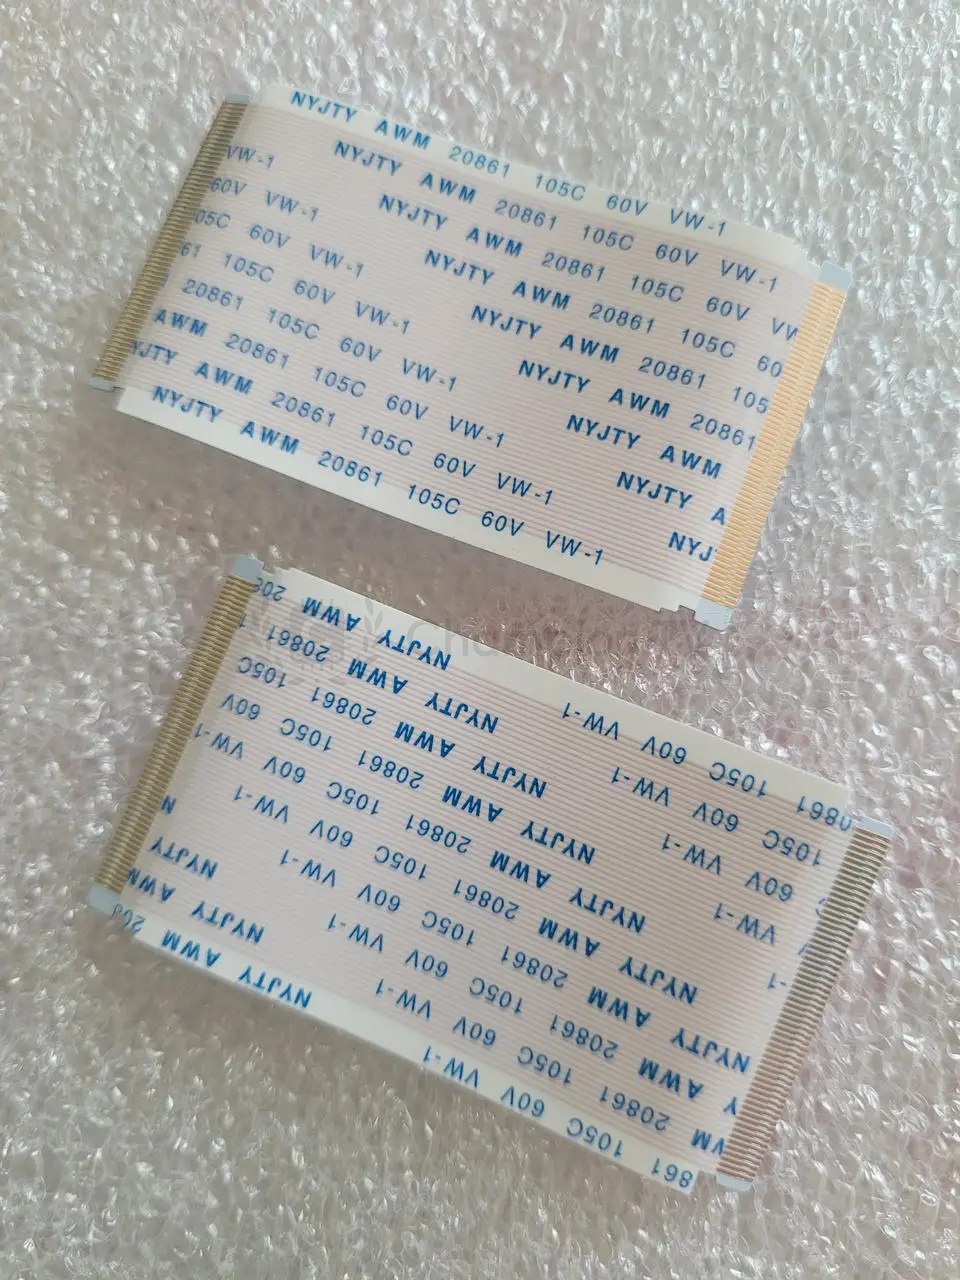 NYJTY AWM 20861 105C 60V VW-1
VW-1 NYJTY AWM 20861 105C 60V VW-1
60V VW-1 NYJTY AWM 20861 105C 60V VW
05C 60V VW-1 NYJTY AWM 20861 105C 60
61 105C 60V VW-1 NYJTY AWM 20861 105
20861 105C 60V VW-1 NYJTY AWM 20861
AWM 20861 105C 60V VW-1 NYJTY AWM
YJTY AWM 20861 105C 60V VW-1 NYJTY A
NYJTY AWM 20861 105C 60V VW-1 NYJ
861 105C 60V VW-1 NYJTY AWM 208
WM 20861 105C 60V VW-1 NYJTY AWM
Y AWM 20861 105C 60V VW-1 NYJTY
NYJTY AWM 20861 105C 60V VW-1 N
NYJTY AWM 20861 105C 60V VW-1
-1 NYJTY AWM 20861 105C 60V VW-1
VW-1 NYJTY AWM 20861 105C 60V
60V VW-1 NYJTY AWM 20861 105C
105C 60V VW-1 NYJTY AWM 20861 1
0861 105C 60V VW-1 NYJTY AWM 208